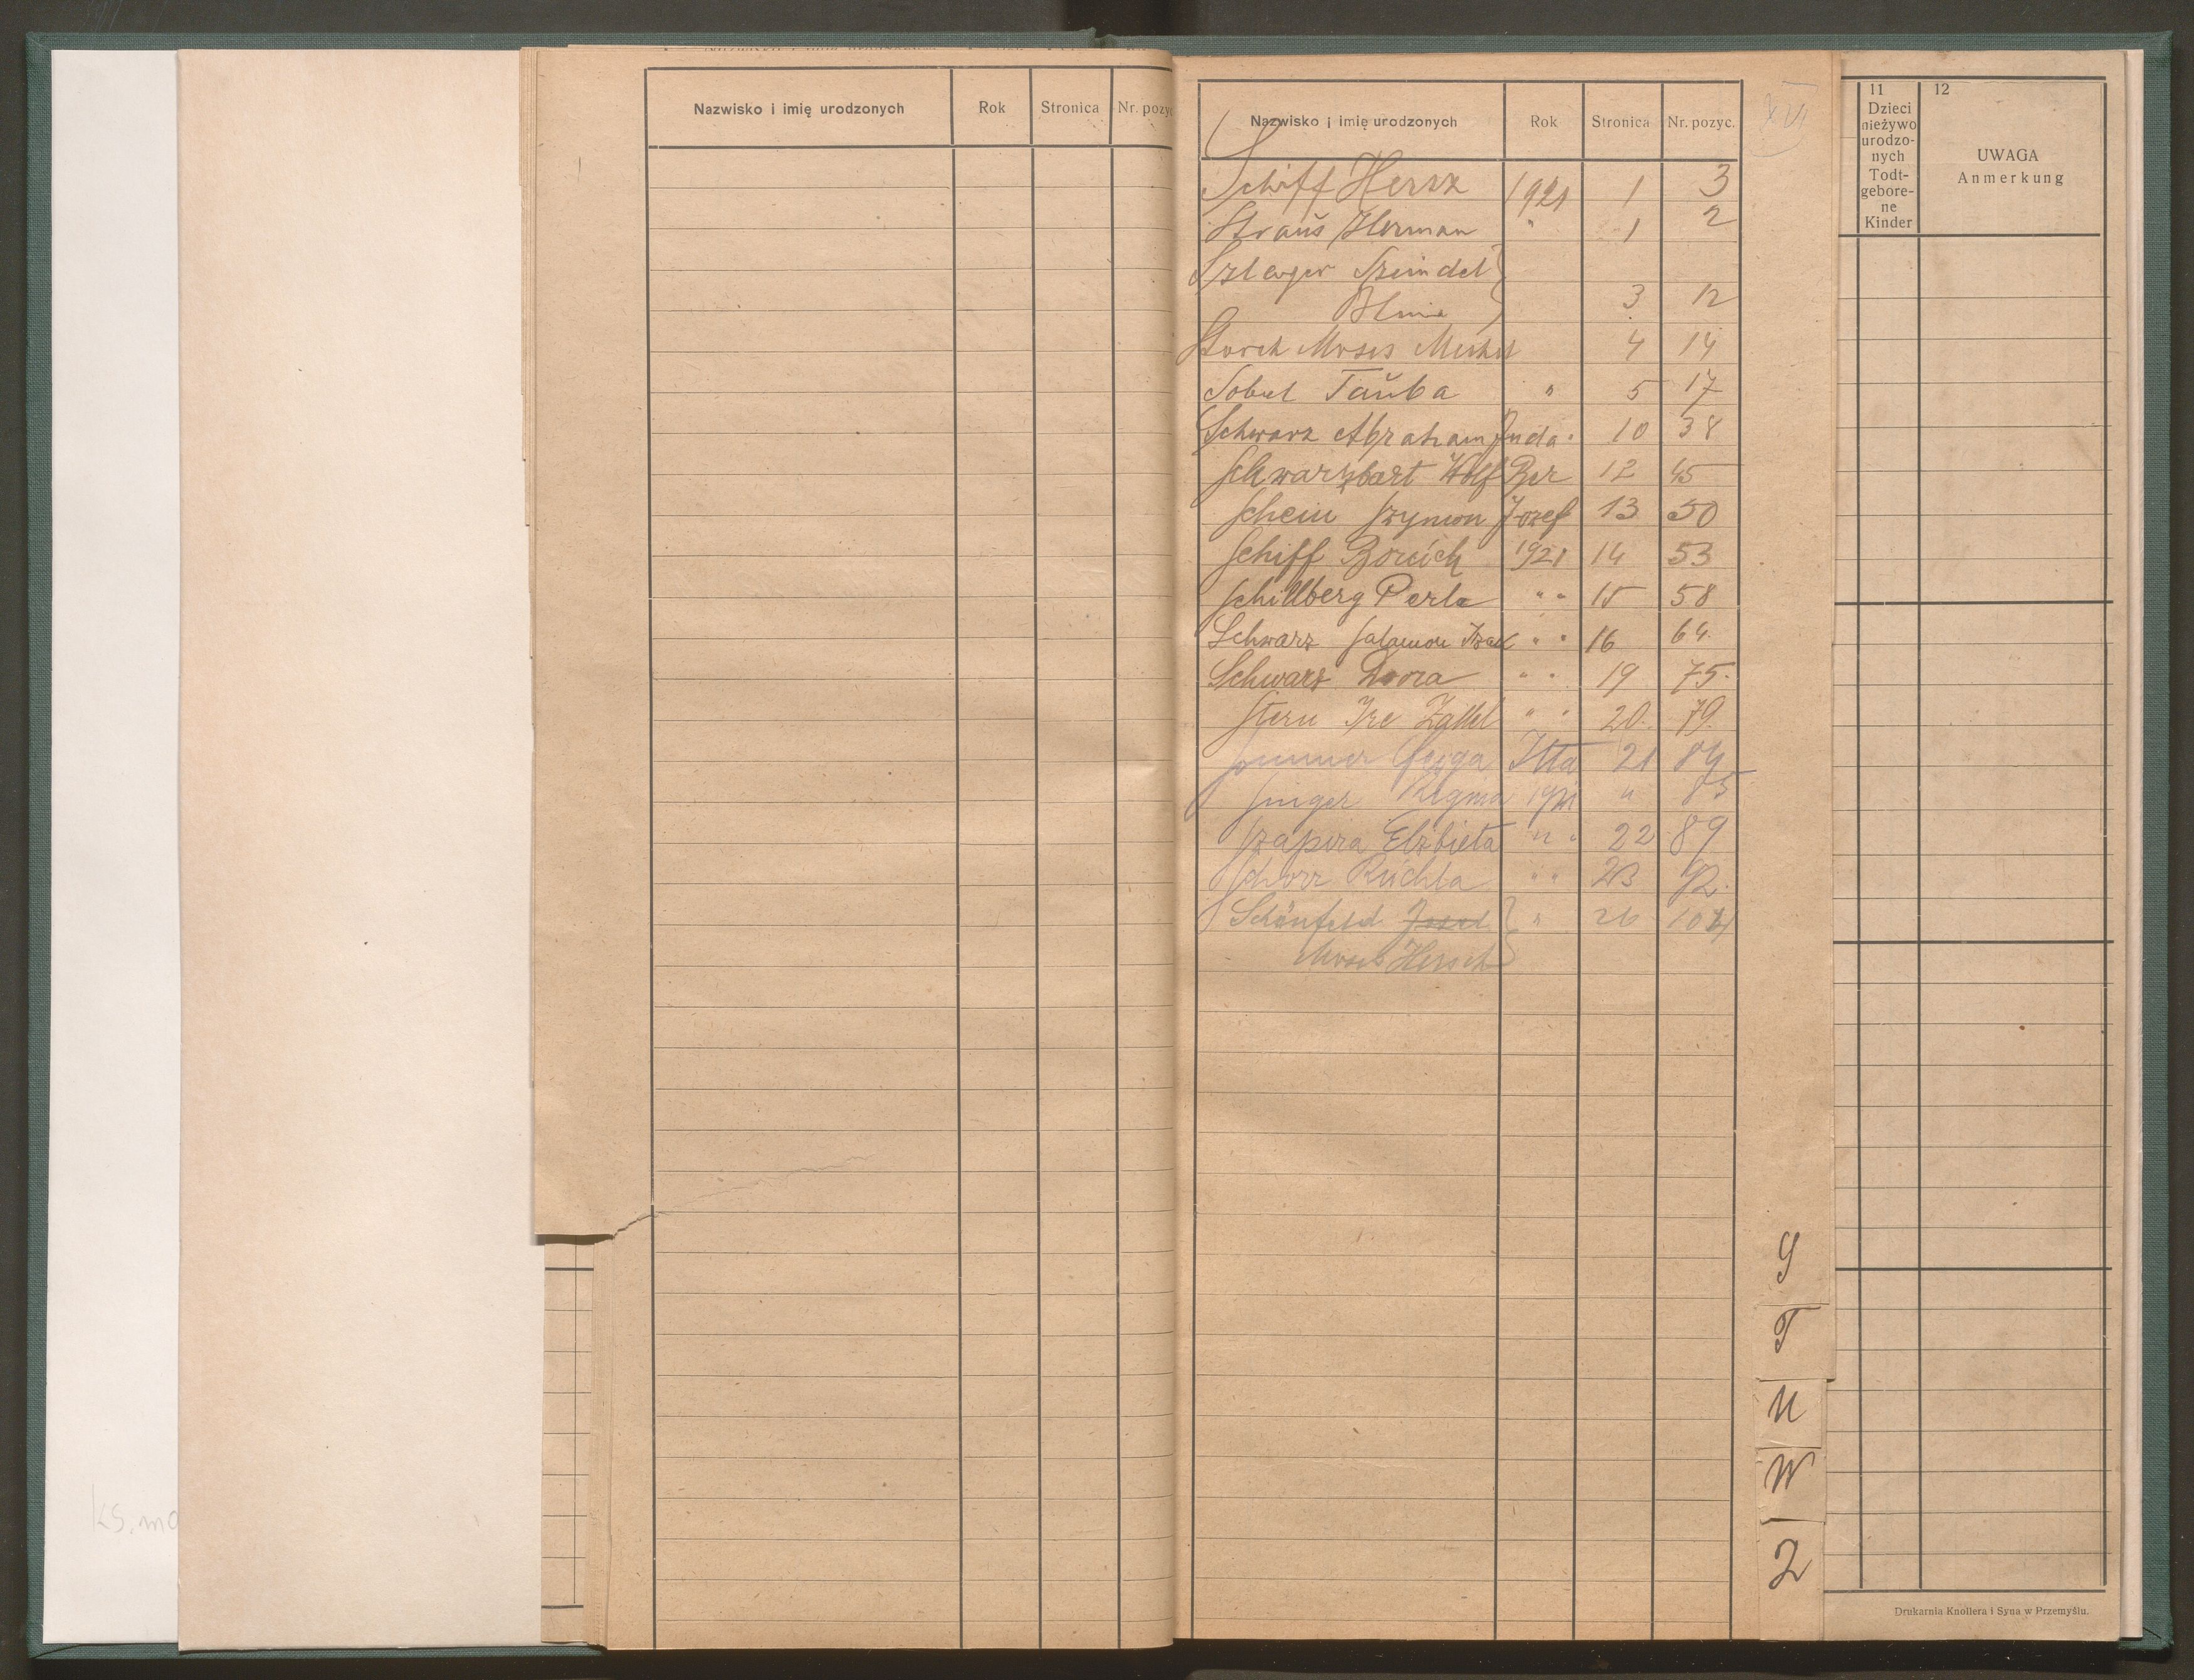 Nazwisko i imię urodzonych Rok Stronica Nr. pozyc
Nazwisko i imię urodzonych Rok Stronica Nr. pozyc.
XVI
Schiff Hersz 1921 1 3
Strauš Herman " 1 2
Szlager Szeindel
Blima 3 12
Storch Moses Mechel 4 14
Sobel Tauba " 5 17
Schwarz Abraham Juda 10 38
Schwarzbart Wolf Ber 12 45
Schein Szymon Jozef 13 50
Schiff Boruch 1921 14 53
Schillberg Perla " " 15 58
Schwarz Salamon Izak " " 16 64.
Schwarz Dora " " 19 75.
Stern Zallel " " 20. 79.
Sommer Itta 21 84
Singer Regina 1921 " 85
Szapira Elżbieta " " 22 89
Schorr Ruchla " " 23 92.
Schönfeld Josel " 26 104
Moses Hersch
S
T
U
W
Z
11
Dzieci
nieżywo
urodzo-
nych
Todt-
gebore-
ne
Kinder
12
UWAGA
Anmerkung
Drukarnia Knollera i Syna w Przemyślu.
ks. mo